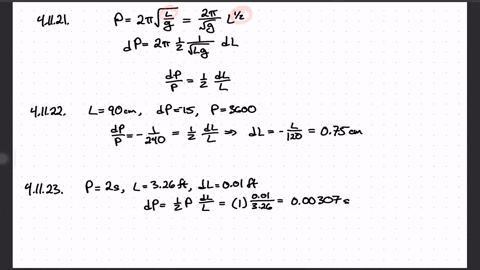 4.11.21. P = 2π√(L/g) = 2π/√g L^(1/2)
dP = 2π 1/2 1/√(Lg) dL
dP/P = 1/2 dL/L
4.11.22. L = 90 cm, dP = 15, P = 3600
dP/P = - 1/240 = 1/2 dL/L ⇒ dL = - L/120 = 0.75 cm
4.11.23. P = 2s, L = 3.26 ft, dL = 0.01 ft
dP = 1/2 P dL/L = (1) 0.01/3.26 = 0.00307 s